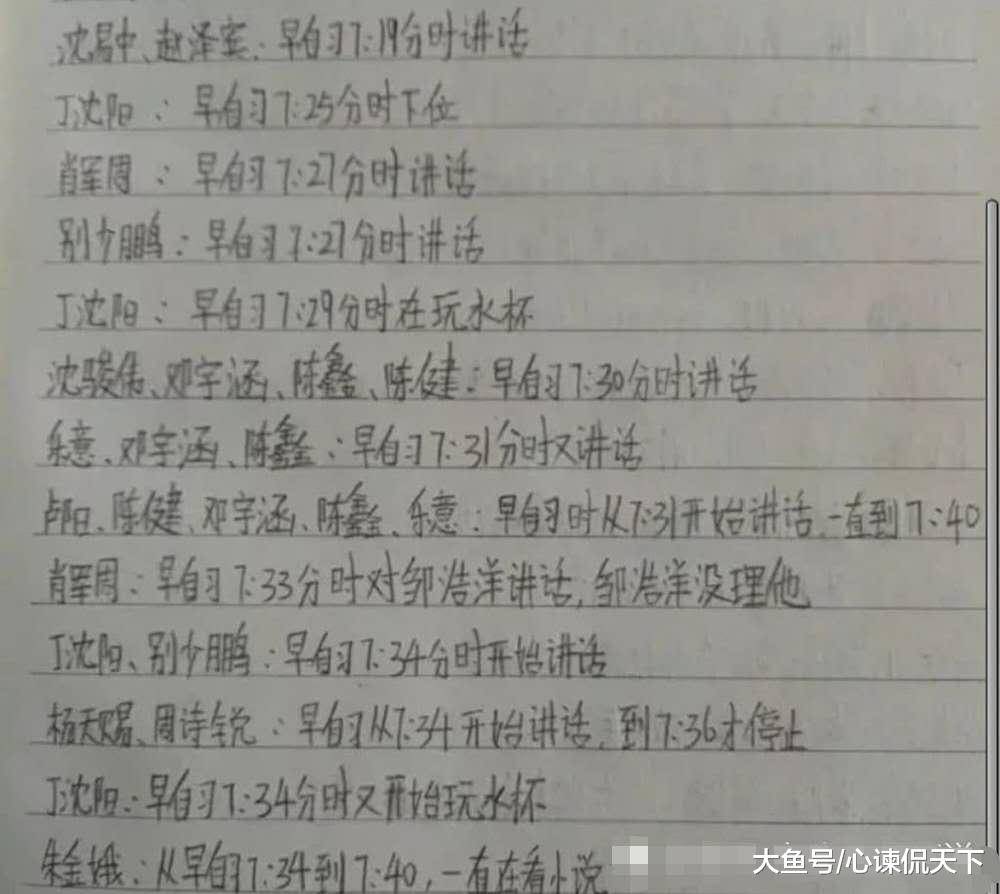 沈易中、赵泽宇:早自习7:19分时讲话
丁沈阳:早自习7:25分时下位
肖军周:早自习7:27分时讲话
别少鹏:早自习7:27分时讲话
丁沈阳:早自习7:29分时在玩水杯
沈骏伟、邓宇涵、陈鑫、陈健:早自习7:30分时讲话
乐意、邓宇涵、陈鑫:早自习7:31分时又讲话
卢阳、陈健、邓宇涵、陈鑫、乐意:早自习时从7:31开始讲话,一直到7:40
肖军周:早自习7:33分时对邹浩洋讲话,邹浩洋没理他
丁沈阳、别少鹏:早自习7:34分时开始讲话
杨天赐、周诗锐:早自习从7:34开始讲话,到7:36才停止
丁沈阳:早自习7:34分时又开始玩水杯
朱金娥:从早自习7:34到7:40,一直在看小说
大鱼号/心谏侃天下